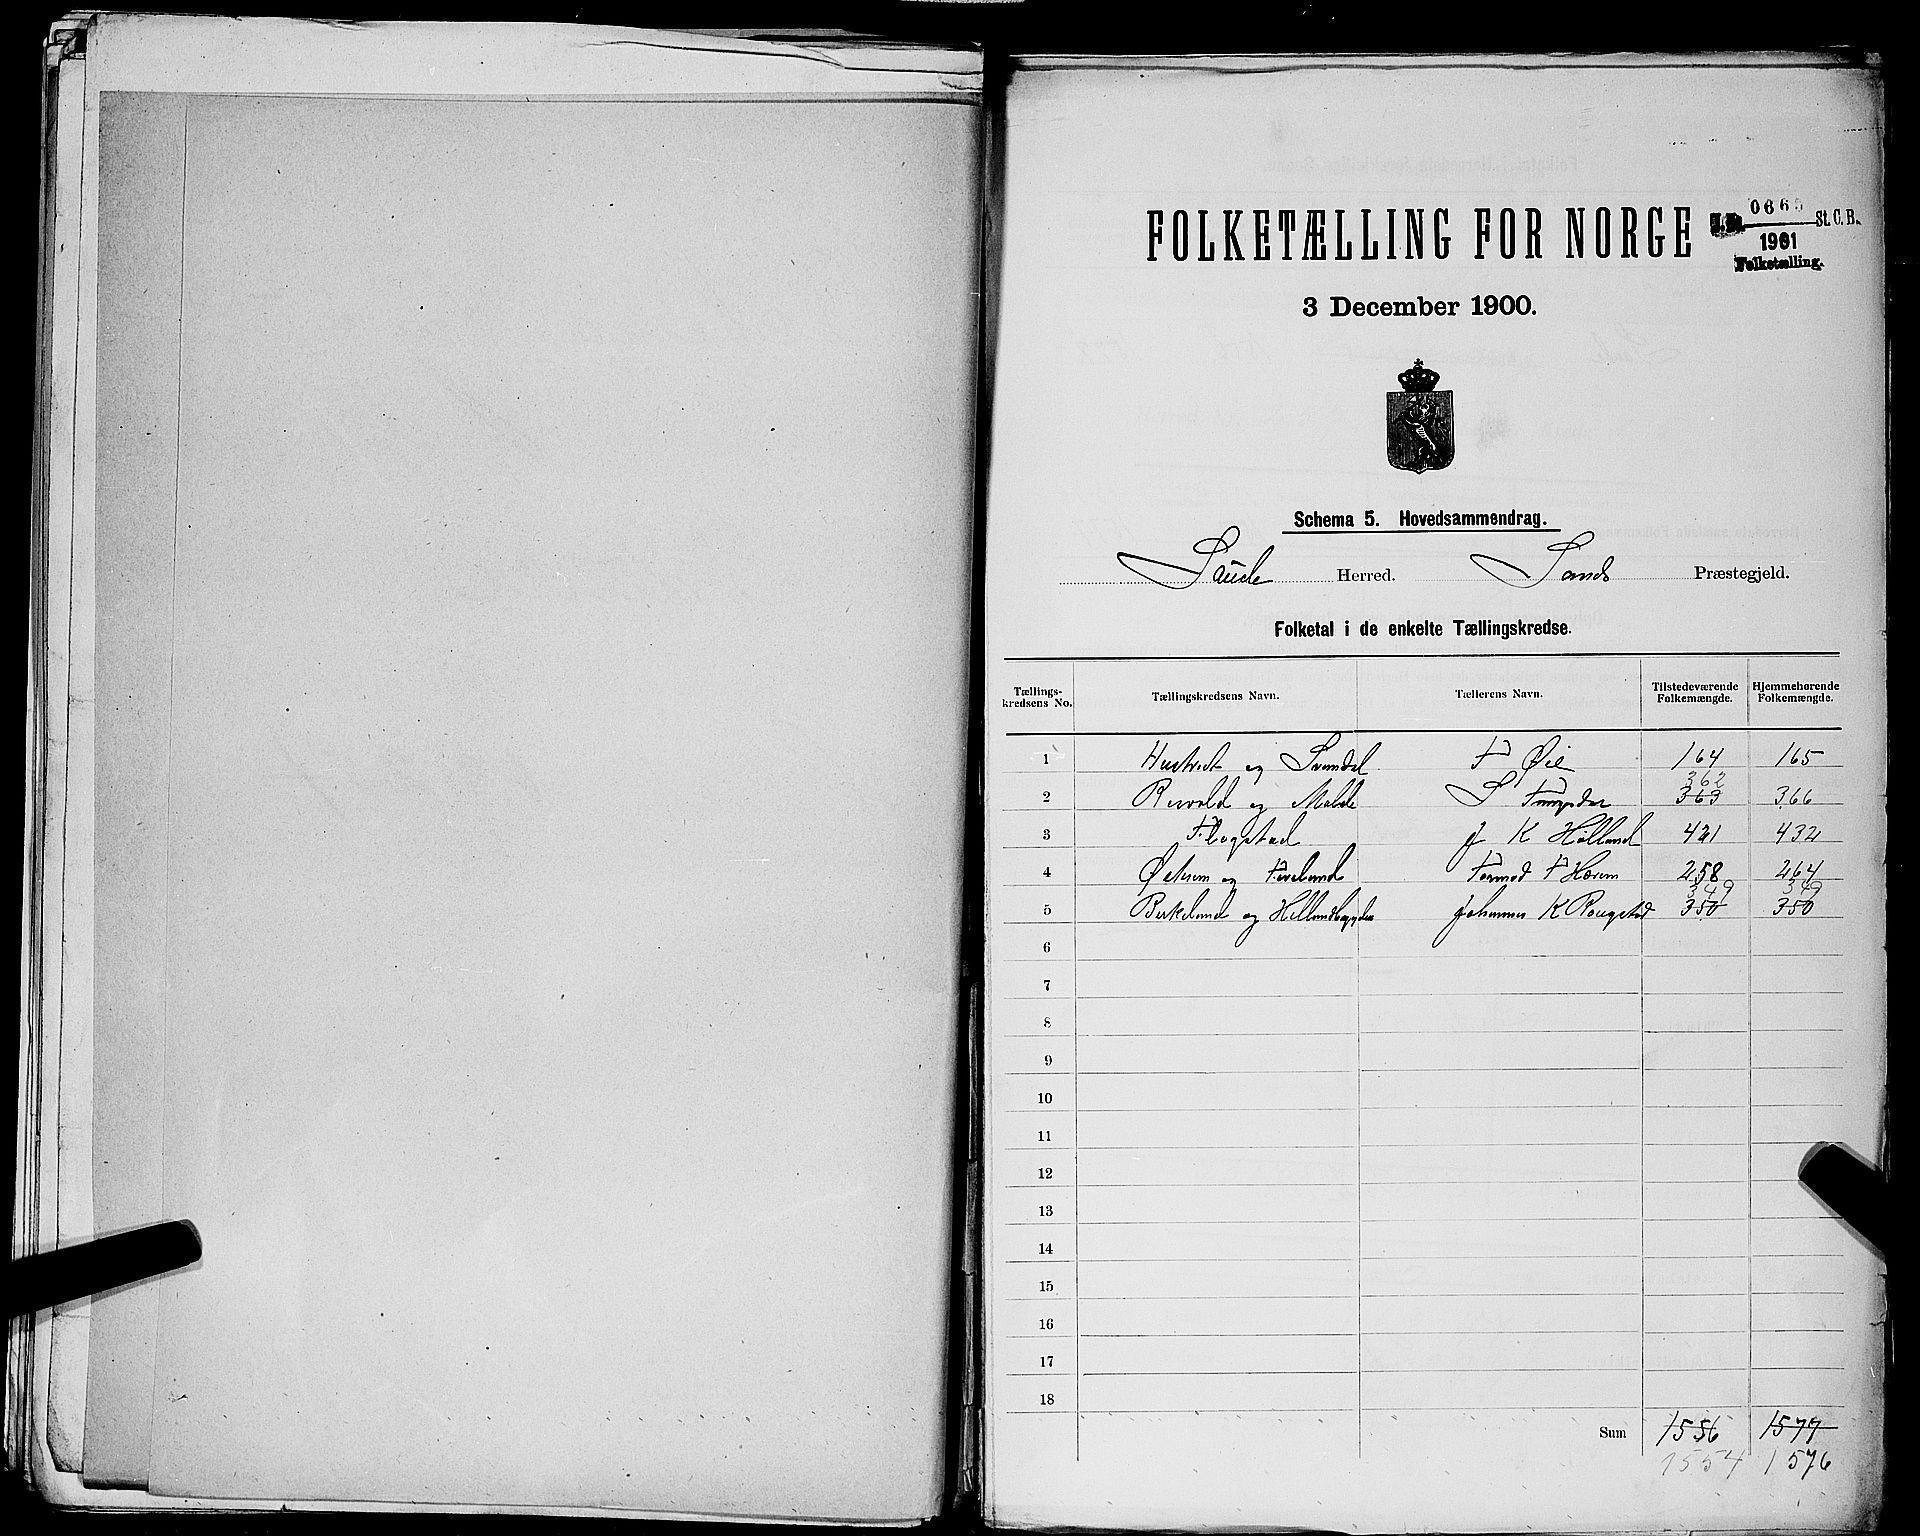 FOLKETÆLLING FOR NORGE
J.No. 0665 St. C. B.
1901
Folketælling.
3 December 1900.
Schema 5. Hovedsammendrag.
Saude Herred. Sands Præstegjeld.
Folketal i de enkelte Tællingskredse.
Tællings-kredsens No. Tællingskredsens Navn. Tællerens Navn. Tilstedeværende Folkemængde. Hjemmehørende Folkemængde.
1 og Svandal T Øie 164 165
362
2 og Molde S 363 366
3 Fløgstad J K Hølland 421 432
4 og Tveland Tormod T Hærem 258 264
349 349
5 Birkeland og Hellandsbygden Johannes K Rougstad 350 350
6
7
8
9
10
11
12
13
14
15
16
17
18
Sum 1556 1577
1554 1576